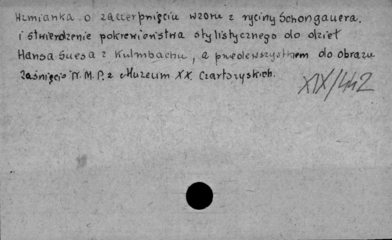 Wzmianka o zaczerpnięciu wzoru z ryciny Schongauera.
i stwierdzenie pokrewieństwa stylistycznego do dzieł
Hansa Suesa z Kulmbachu, a przedewszystkiem do obrazu
Zaśnięcie N.M.P. z Muzeum XX. Czartoryskich.
XIX/442